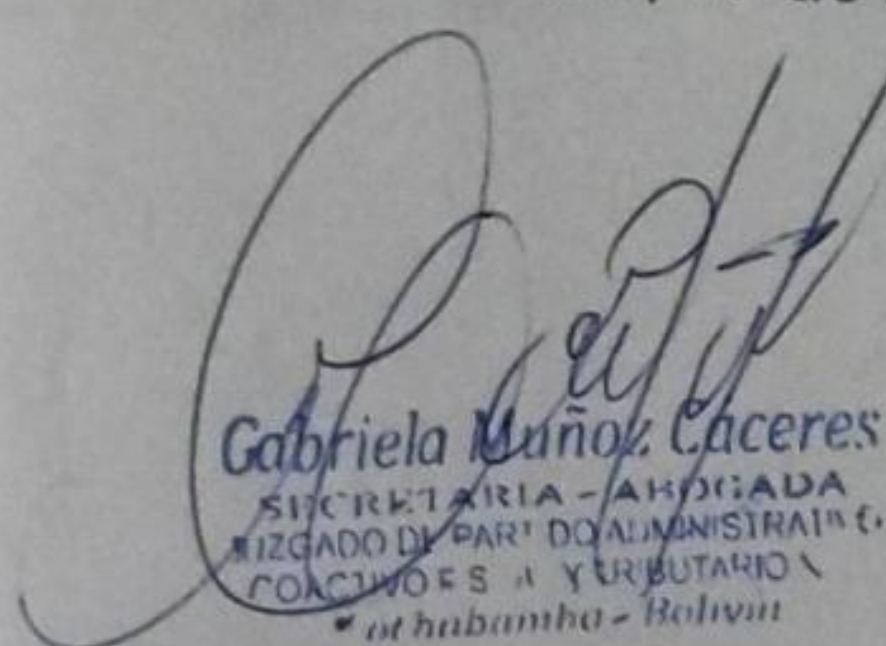 Gabriela Muñoz Cáceres
SECRETARIA - ABOGADA
JUZGADO DE PARTIDO ADMINISTRATIVO
COACTIVO FISCAL Y TRIBUTARIO
Cochabamba - Bolivia